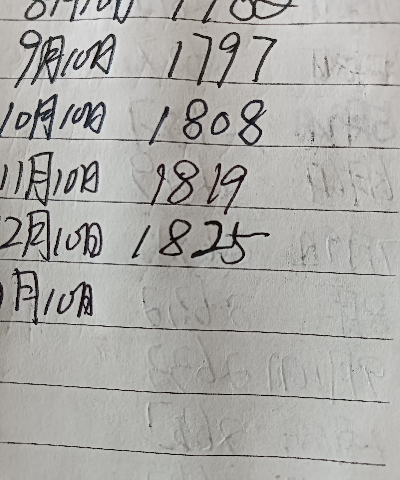 8月10日
9月10日 1797
10月10日 1808
11月10日 1819
2月10日 1825
1月10日